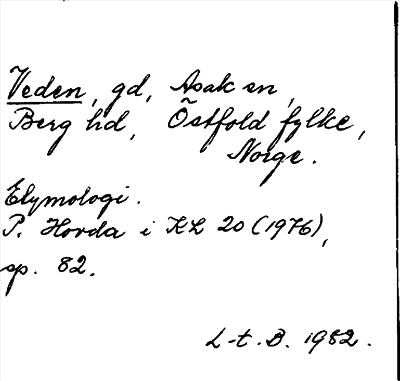 Veden, gd, Asak sn,
Berg hd, Östfold fylke,
Norge.
Etymologi.
P. Hovda i KL 20 (1976),
sp. 82.
L-t. B. 1982.